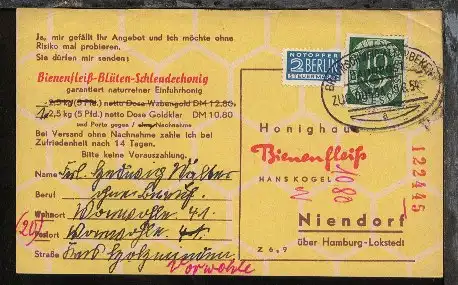 Ja, mir gefällt Ihr Angebot und ich möchte ohne
Risiko mal probieren.
Sie dürfen mir senden:
Bienenfleiß-Blüten-Schleuderhonig
garantiert naturreiner Einfuhrhonig
2,5 kg (5 Pfd.) netto Dose Wabengold DM 12.80
2,5 kg (5 Pfd.) netto Dose Goldklar DM 10.80
und Porto gegen / ohne Nachnahme
Bei Versand ohne Nachnahme zahle ich bei
Zufriedenheit nach 14 Tagen.
Bitte keine Vorauszahlung.
Name Frl. Hedwig Walter
Beruf ohne Beruf.
Wohnort Vorwohle 41.
(20) Postort Vorwohle 41
Straße Krs Holzminden
Vorwohle
NOTOPFER
2 BERLIN
STEUERMARKE
10
Honighaus
Bienenfleiß
HANS KOGEL
1080
Niendorf
über Hamburg-Lokstedt
Z 6,9
122445